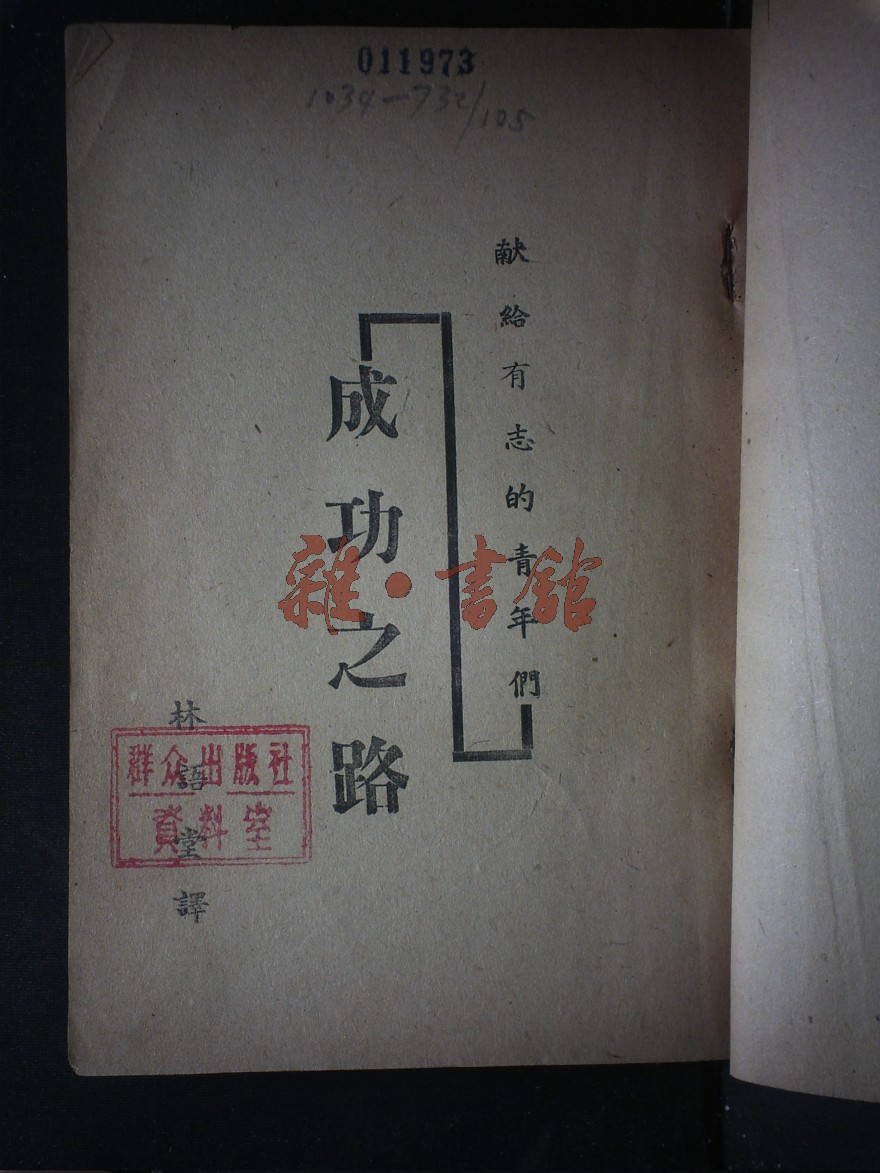 011973
1034—732/105
献給有志的青年們
成功之路
林語堂譯
群众出版社
資料室
雜·書館